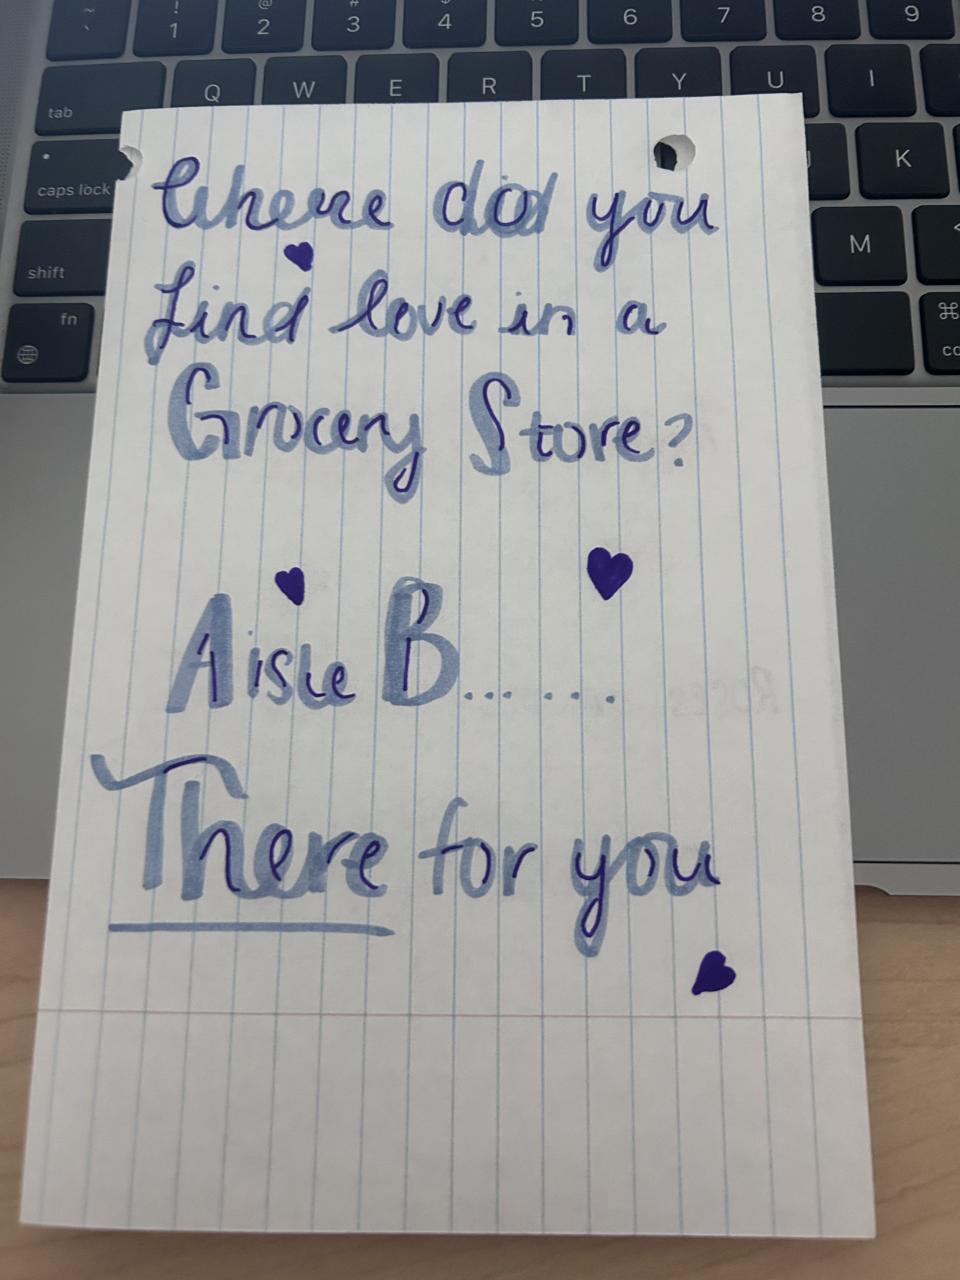 ~
`
!
1
@
2
#
3
$
4
5
6
7
8
9
tab
Q
W
E
R
T
Y
U
I
caps lock
J
K
shift
M
<
fn
⌘
Where did you
find love in a
Grocery Store?
Aisle B... ...
There for you